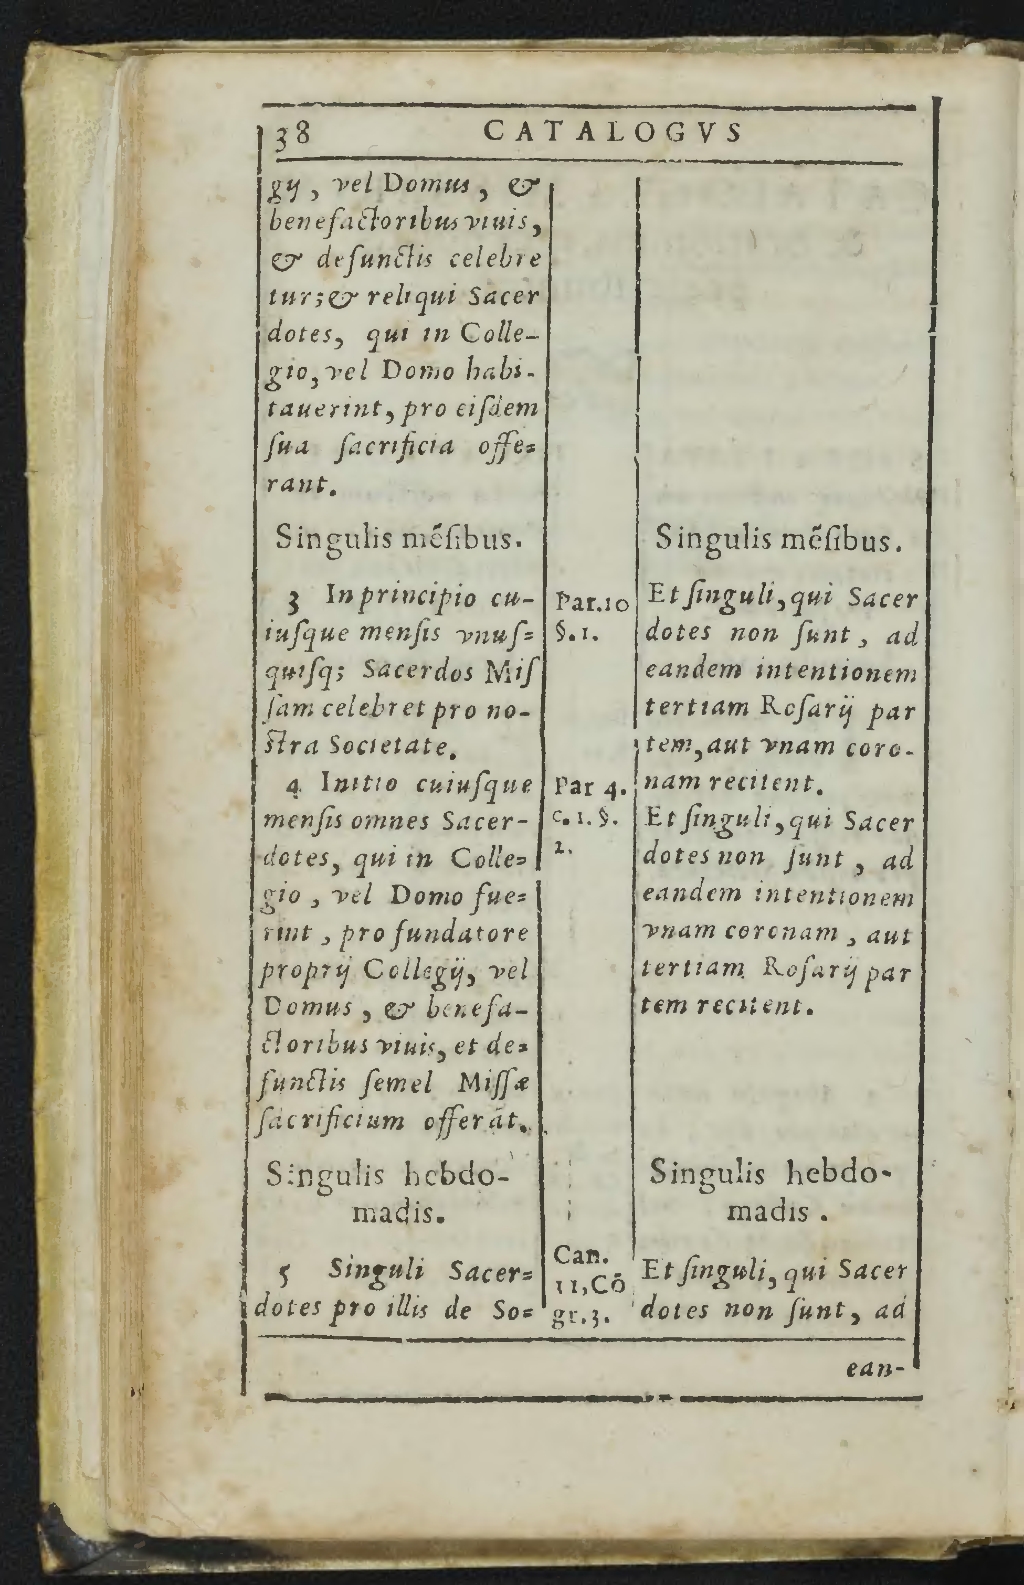 38 CATALOGVS
gij, vel Domus, &
benefactoribus viuis,
& defunctis celebre
tur; & reliqui Sacer
dotes, qui in Colle-
gio, vel Domo habi-
tauerint, pro eiſdem
ſua ſacrificia offe-
rant.
Singulis mẽſibus.
3 In principio cu-
iuſque menſis vnuſ-
quiſq; Sacerdos Miſ
ſam celebret pro no-
ſtra Societate.
4 Initio cuiuſque
menſis omnes Sacer-
dotes, qui in Colle-
gio, vel Domo fue-
rint, pro fundatore
proprij Collegij, vel
Domus, & benefa-
ctoribus viuis, et de-
functis ſemel Miſſæ
ſacrificium offerãt.
Singulis hebdo-
madis.
5 Singuli Sacer-
dotes pro illis de So-
Par.10
§.1.
Par 4.
c.1.§.
2.
Can.
11,Cõ
gr.3.
Singulis mẽſibus.
Et ſinguli, qui Sacer
dotes non ſunt, ad
eandem intentionem
tertiam Roſarij par
tem, aut vnam coro-
nam recitent.
Et ſinguli, qui Sacer
dotes non ſunt, ad
eandem intentionem
vnam coronam, aut
tertiam Roſarij par
tem recitent.
Singulis hebdo-
madis.
Et ſinguli, qui Sacer
dotes non ſunt, ad
ean-